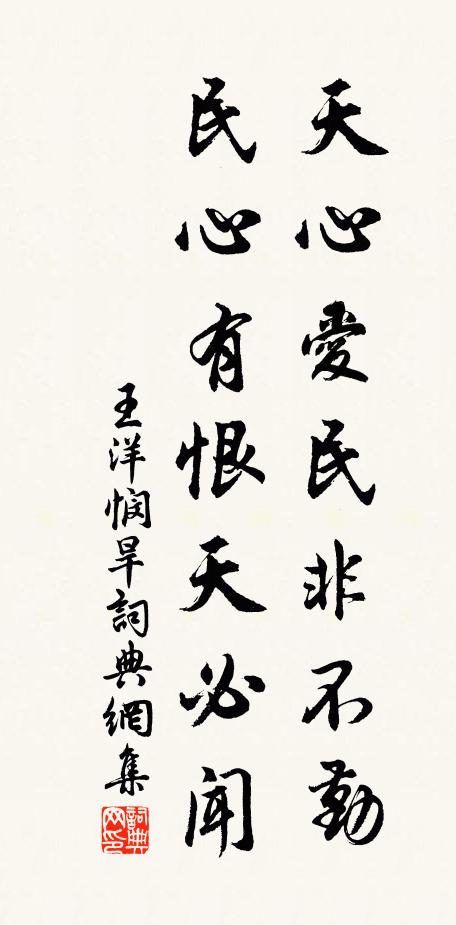 天心愛民非不勤
民心有恨天必聞
王洋憫旱詞典網集
詞典网印